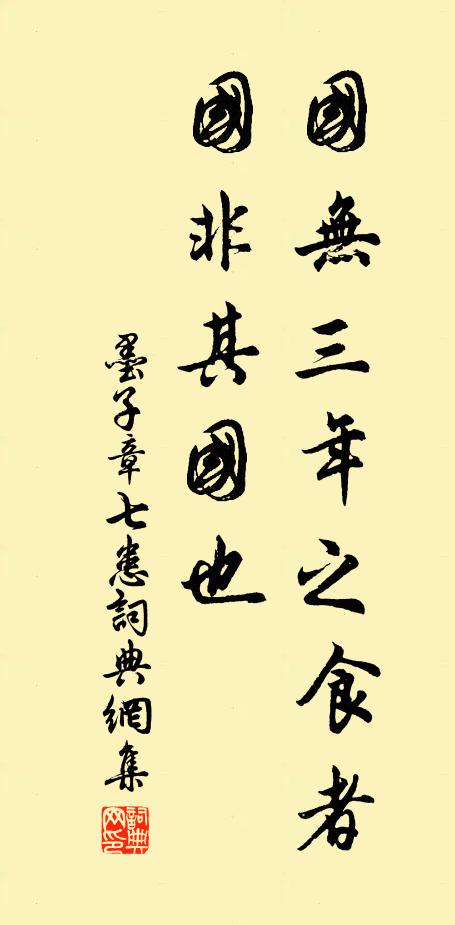 國無三年之食者
國非其國也
墨子章七患詞典網集
詞典網印